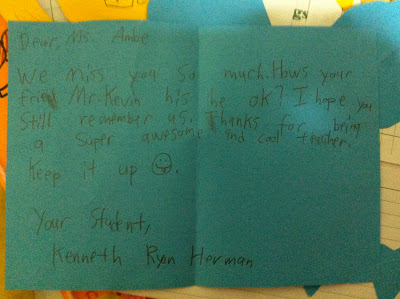 gs
Dear, Ms. Ambe
We miss you so much. Hows your
friend Mr. Kevin his he ok? I hope you
Still remember us. Thanks for being
a super awesome and cool teacher.
Keep it up ☺.
Your Student,
Kenneth Ryan Herman